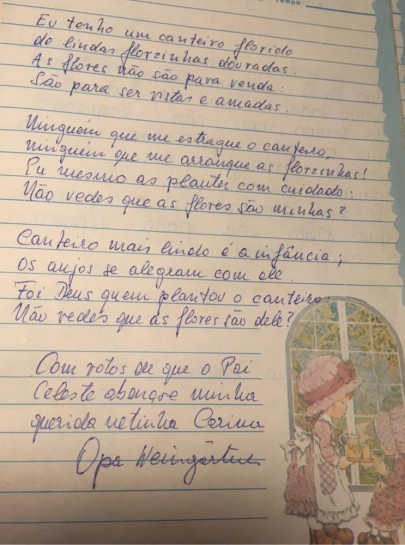 Eu tenho um canteiro florido
de lindas florzinhas douradas.
As flores não são para venda:
São para ser vistas e amadas.
Ninguém que me estrague o canteiro,
ninguém que me arranque as florzinhas!
Eu mesmo as plantei com cuidado:
Não vedes que as flores são minhas?
Canteiro mais lindo é a infância;
Os anjos se alegram com ele.
Foi Deus quem plantou o canteiro:
Não vedes que as flores são dele?
Com votos de que o Pai
Celeste abençoe minha
querida netinha Carina
Opa Weingärtner